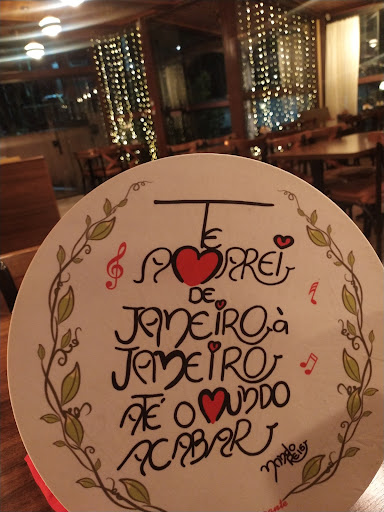 TE
AMAREI
DE
JANEIRO à
JANEIRO
ATÉ O MUNDO
ACABAR
NANDO
REIS